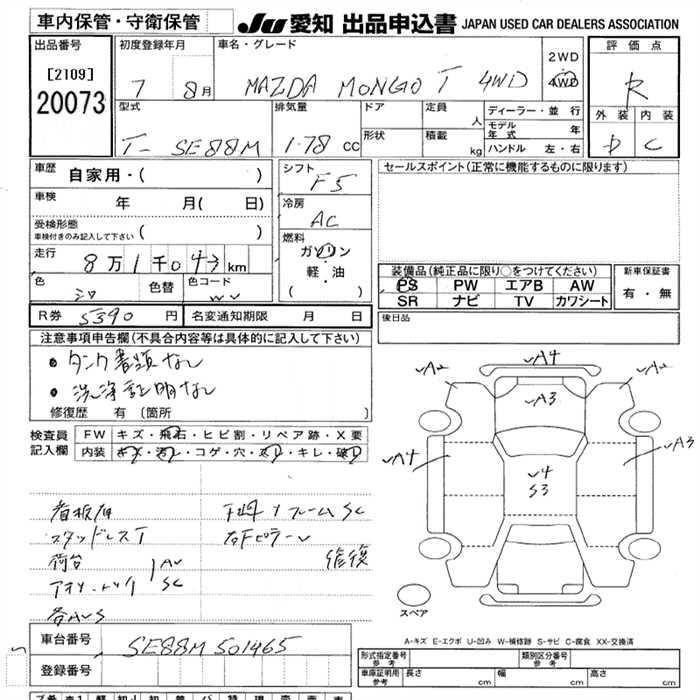 車内保管・守衛保管
JU 愛知 出品申込書 JAPAN USED CAR DEALERS ASSOCIATION
出品番号
[2109]
20073
初度登録年月
7 8月
車名・グレード
MAZDA MONGO T 4WD
2WD
4WD
評価点
R
外装 内装
D C
型式
T- SE88M
排気量
1.78 cc
ドア
形状
定員
人
積載
kg
ディーラー・並行
モデル年式 年
ハンドル 左・右
車歴 自家用・( )
車検 年 月( 日)
受検形態
車検付きのみ記入して下さい ( )
走行 8万1千043km
色 シロ
色替
色コード
R券 5390 円
名変通知期限 月 日
シフト
F5
冷房
AC
燃料
ガソリン
・
軽・油
( )
セールスポイント(正常に機能するものに限ります)
装備品(純正品に限り○をつけてください)
PS PW エアB AW
SR ナビ TV カワシート
新車保証書
有・無
後日品
注意事項申告欄(不具合内容等は具体的に記入して下さい)
●タンク書類なし
●洗浄証明なし
修復歴 有 〔箇所 〕
検査員
記入欄
FW キズ・飛石・ヒビ割・リペア跡・X要
内装 キズ・汚レ・コゲ・穴・スレ・キレ・破レ
看板有
スタッドレスT
荷台 AU
SC
各AUS
下廻リフレームSC
右Fピラー
修復
A2 A4 A2
A3
A4 A3
4
S3
スペア
A-キズ E-エクボ U-凹み W-補修跡 S-サビ C-腐食 XX-交換済
車台番号 SE88M 501465
登録番号
型式指定番号
参考
類別区分番号
参考
車庫証明用
参考
長さ cm 幅 cm 高さ cm